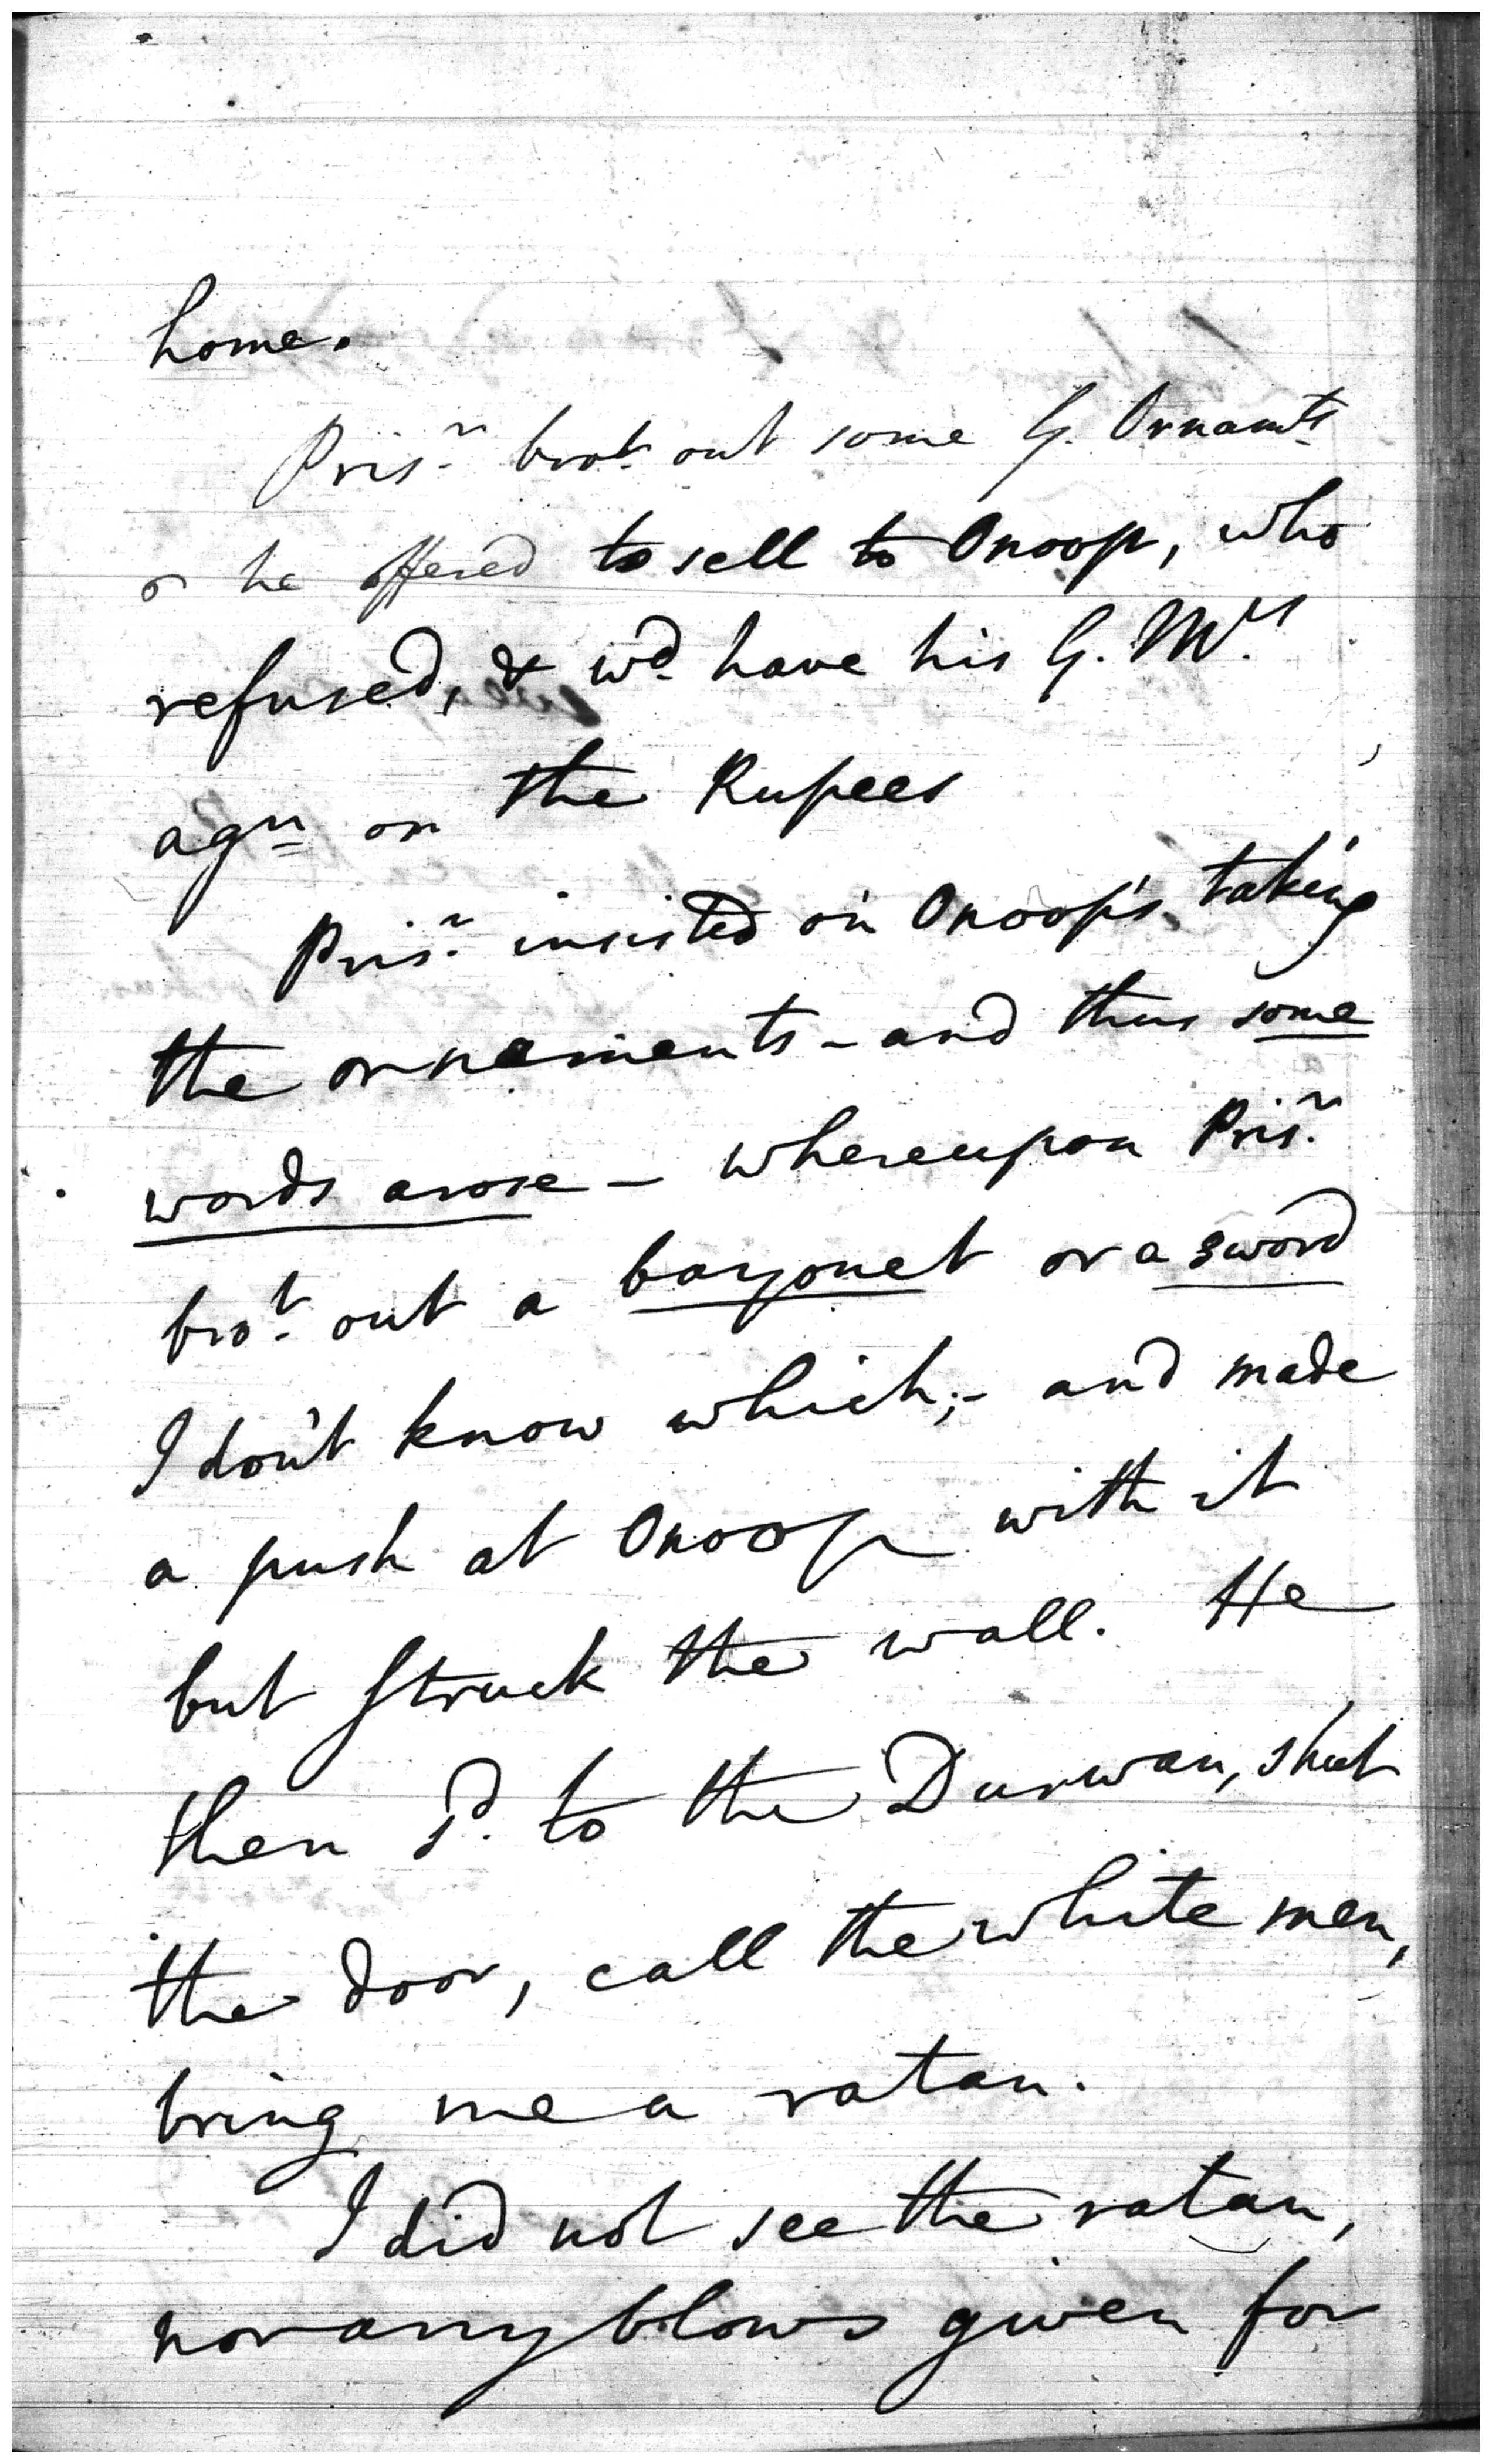 home.
Prisr brot out some G. Ornamts
& he offered to sell to Onoop, who
refused, & wd have his G. Mrs
agn or the Rupees
Prisr insisted on Onoop's taking
the ornaments - and thus some
words arose - whereupon Prisr
brot out a bayonet or a sword
I don't know which; - and made
a push at Onoop with it
but struck the wall. He
then sd to the Durwan, shut
the door, call the white men,
bring me a ratan.
I did not see the ratan,
nor any blows given for